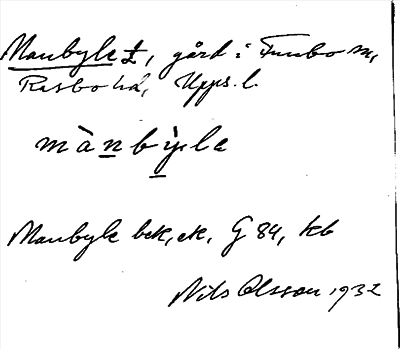 Manbyle ±, gård i Funbo sn,
Rasbo hd, Upps. l.
mànbỳle
Manbyle bek, ek, G 84, kb
Nils Olsson 1932